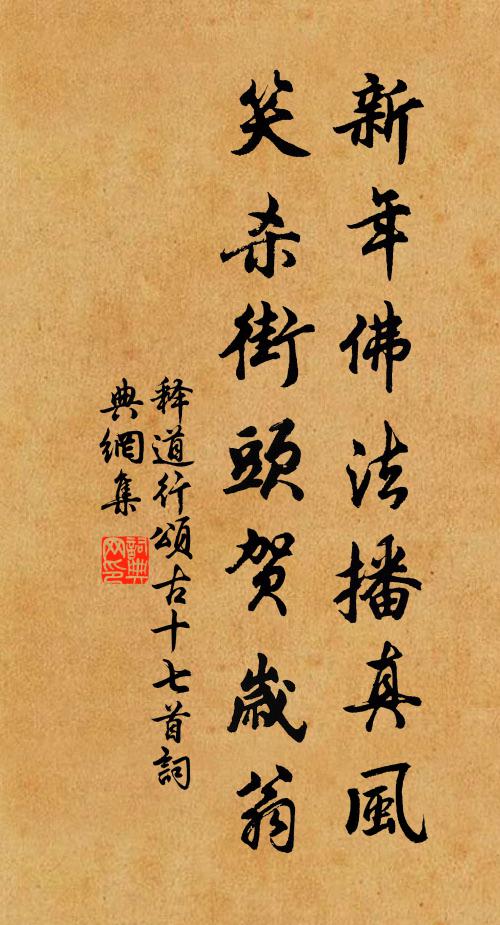 新年佛法播真風
笑杀街頭賀歳翁
释道行頌古十七首詞
典網集
詞典
网印